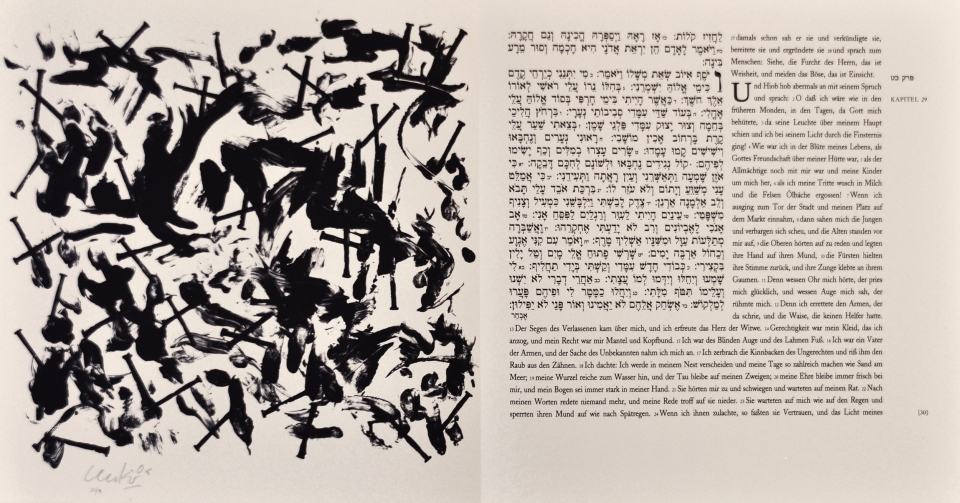 לַחֲזִיז קֹלוֹת: אָז רָאָהּ וַיְסַפְּרָהּ הֱכִינָהּ וְגַם חֲקָרָהּ:
וַיֹּאמֶר לָאָדָם הֵן יִרְאַת אֲדֹנָי הִיא חָכְמָה וְסוּר מֵרָע
בִּינָה:
וַיֹּסֶף אִיּוֹב שְׂאֵת מְשָׁלוֹ וַיֹּאמַר: מִי יִתְּנֵנִי כְיַרְחֵי קֶדֶם
כִּימֵי אֱלוֹהַּ יִשְׁמְרֵנִי: בְּהִלּוֹ נֵרוֹ עֲלֵי רֹאשִׁי לְאוֹרוֹ
אֵלֶךְ חֹשֶׁךְ: כַּאֲשֶׁר הָיִיתִי בִּימֵי חָרְפִּי בְּסוֹד אֱלוֹהַּ עֲלֵי
אָהֳלִי: בְּעוֹד שַׁדַּי עִמָּדִי סְבִיבוֹתַי נְעָרָי: בִּרְחֹץ הֲלִיכַי
בְּחֵמָה וְצוּר יָצוּק עִמָּדִי פַּלְגֵי שָׁמֶן: בְּצֵאתִי שַׁעַר עֲלֵי
קָרֶת בָּרְחוֹב אָכִין מוֹשָׁבִי: רָאוּנִי נְעָרִים וְנֶחְבָּאוּ
וִישִׁישִׁים קָמוּ עָמָדוּ: שָׂרִים עָצְרוּ בְמִלִּים וְכַף יָשִׂימוּ
לְפִיהֶם: קוֹל נְגִידִים נֶחְבָּאוּ וּלְשׁוֹנָם לְחִכָּם דָּבֵקָה: כִּי
אֹזֶן שָׁמְעָה וַתְּאַשְּׁרֵנִי וְעַיִן רָאֲתָה וַתְּעִידֵנִי: כִּי אֲמַלֵּט
עָנִי מְשַׁוֵּעַ וְיָתוֹם וְלֹא עֹזֵר לוֹ: בִּרְכַּת אֹבֵד עָלַי תָּבֹא
וְלֵב אַלְמָנָה אַרְנִן: צֶדֶק לָבַשְׁתִּי וַיִּלְבָּשֵׁנִי כִּמְעִיל וְצָנִיף
מִשְׁפָּטִי: עֵינַיִם הָיִיתִי לַעִוֵּר וְרַגְלַיִם לַפִּסֵּחַ אָנִי: אָב
אָנֹכִי לָאֶבְיוֹנִים וְרִב לֹא יָדַעְתִּי אֶחְקְרֵהוּ: וָאֲשַׁבְּרָה
מְתַלְּעוֹת עַוָּל וּמִשִּׁנָּיו אַשְׁלִיךְ טָרֶף: וָאֹמַר עִם קִנִּי אֶגְוָע
וְכַחוֹל אַרְבֶּה יָמִים: שָׁרְשִׁי פָתוּחַ אֱלֵי מָיִם וְטַל יָלִין
בִּקְצִירִי: כְּבוֹדִי חָדָשׁ עִמָּדִי וְקַשְׁתִּי בְּיָדִי תַחֲלִיף: לִי
שָׁמְעוּ וְיִחֵלּוּ וְיִדְּמוּ לְמוֹ עֲצָתִי: אַחֲרֵי דְבָרִי לֹא יִשְׁנוּ
וְעָלֵימוֹ תִּטֹּף מִלָּתִי: וְיִחֲלוּ כַמָּטָר לִי וּפִיהֶם פָּעֲרוּ
לְמַלְקוֹשׁ: אֶשְׂחַק אֲלֵהֶם לֹא יַאֲמִינוּ וְאוֹר פָּנַי לֹא יַפִּילוּן:
אֶבְחַר
27 damals schon sah er sie und verkündigte sie,
bereitete sie und ergründete sie 28 und sprach zum
Menschen: Siehe, die Furcht des Herrn, das ist
Weisheit, und meiden das Böse, das ist Einsicht.
פרק כט
KAPITEL 29
Und Hiob hob abermals an mit seinem Spruch
und sprach: 2 O daß ich wäre wie in den
früheren Monden, in den Tagen, da Gott mich
behütete, 3 da seine Leuchte über meinem Haupt
schien und ich bei seinem Licht durch die Finsternis
ging! 4 Wie war ich in der Blüte meines Lebens, als
Gottes Freundschaft über meiner Hütte war, 5 als der
Allmächtige noch mit mir war und meine Kinder
um mich her, 6 als ich meine Tritte wusch in Milch
und die Felsen Ölbäche ergossen! 7 Wenn ich
ausging zum Tor der Stadt und meinen Platz auf
dem Markt einnahm, 8 dann sahen mich die Jungen
und verbargen sich scheu, und die Alten standen vor
mir auf, 9 die Oberen hörten auf zu reden und legten
ihre Hand auf ihren Mund, 10 die Fürsten hielten
ihre Stimme zurück, und ihre Zunge klebte an ihrem
Gaumen. 11 Denn wessen Ohr mich hörte, der pries
mich glücklich, und wessen Auge mich sah, der
rühmte mich. 12 Denn ich errettete den Armen, der
da schrie, und die Waise, die keinen Helfer hatte.
13 Der Segen des Verlassenen kam über mich, und ich erfreute das Herz der Witwe. 14 Gerechtigkeit war mein Kleid, das ich
anzog, und mein Recht war mir Mantel und Kopfbund. 15 Ich war des Blinden Auge und des Lahmen Fuß. 16 Ich war ein Vater
der Armen, und der Sache des Unbekannten nahm ich mich an. 17 Ich zerbrach die Kinnbacken des Ungerechten und riß ihm den
Raub aus den Zähnen. 18 Ich dachte: Ich werde in meinem Nest verscheiden und meine Tage so zahlreich machen wie Sand am
Meer; 19 meine Wurzel reiche zum Wasser hin, und der Tau bleibe auf meinen Zweigen; 20 meine Ehre bleibe immer frisch bei
mir, und mein Bogen sei immer stark in meiner Hand. 21 Sie hörten mir zu und schwiegen und warteten auf meinen Rat. 22 Nach
meinen Worten redete niemand mehr, und meine Rede troff auf sie nieder. 23 Sie warteten auf mich wie auf den Regen und
sperrten ihren Mund auf wie nach Spätregen. 24 Wenn ich ihnen zulachte, so faßten sie Vertrauen, und das Licht meines
[30]